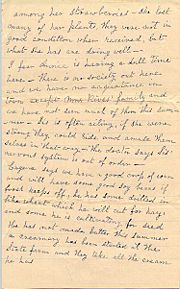 among her strawberries — she lost
many of her plants, they were not in
good condition when received, but
what she has are doing well —
I fear Annie is having a dull time
here — there is no society out here
and we have no acquaintance in
town except Mrs Rives' family and
we have not seen much of them this sum-
mer — He is often ailing, if she were
strong they could ride and amuse them
selves in that way — the doctor says his
nervous system is out of order —
Eugene says we have a good crop of corn
and will have some good soy beans if
frost keeps off, he has some drilled in
like wheat which he will cut for hay
and some he is cultivating for seed
He has not made butter this summer
a creamery has been started at the
State farm and they take all the cream
he has